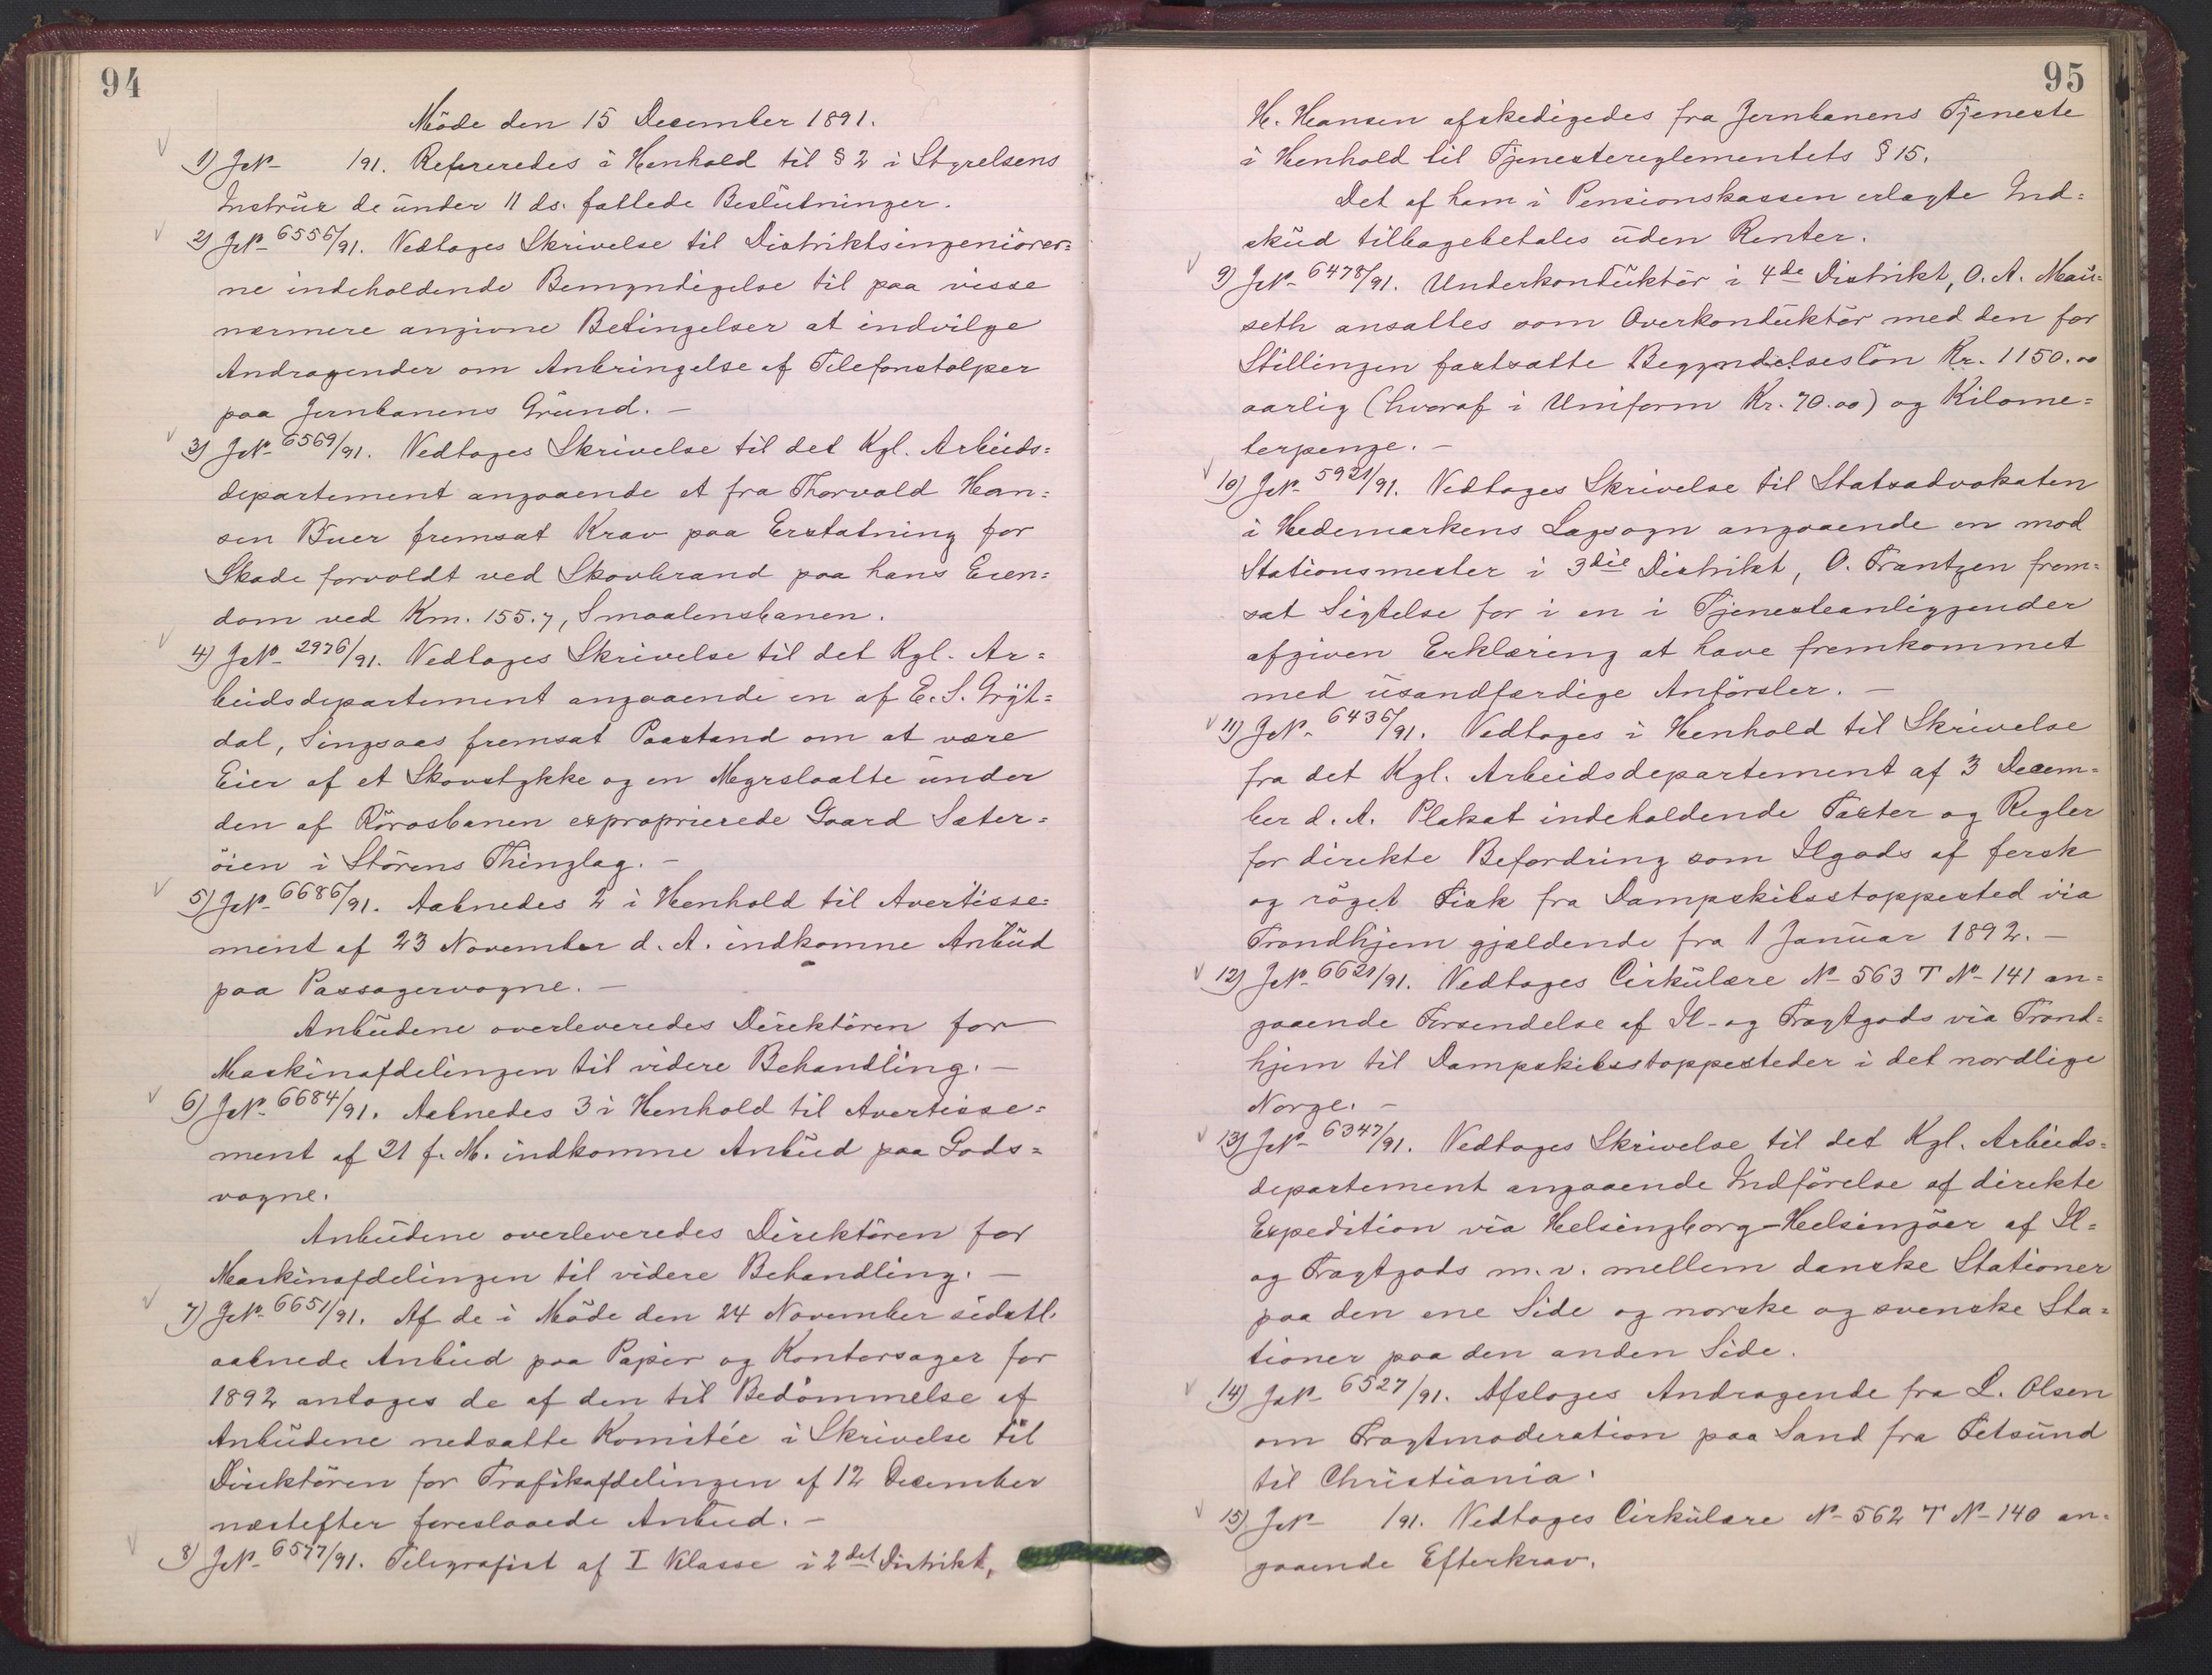 94
Møde den 15 December 1891.
1) J№ /91. Refereredes i Henhold til § 2 i Styrelsens
Instrux de under 11 ds. fattede Beslutninger.
2) J№ 6556/91. Vedtoges Skrivelse til Distriktsingeniörer=
ne indeholdende Bemyndigelse til paa visse
nærmere angivne Betingelser at indvilge
Andragender om Anbringelse af Telefonstolper
paa Jernbanens Grund. —
3) J№ 6569/91. Vedtoges Skrivelse til det Kgl. Arbeids=
departement angaaende et fra Thorvald Han=
sen Buer fremsat Krav paa Erstatning for
Skade forvoldt ved Skovbrand paa hans Eien=
dom ved Km. 155.7, Smaalensbanen.
4) J№ 2976/91. Vedtoges Skrivelse til det Kgl. Ar=
beidsdepartement angaaende en af E. S. Gryt=
dal, Singsaas fremsat Paastand om at være
Eier af et Skovstykke og en Myrslaatte under
den af Rörosbanen exproprierede Gaard Sæter=
öien i Störens Thinglag. —
5) J№ 6686/91. Aabnedes 2 i Henhold til Avertisse=
ment af 23 November d. A. indkomne Anbud
paa Passagervogne. —
Anbudene overleveredes Direktören for
Maskinafdelingen til videre Behandling. —
6) J№ 6684/91. Aabnedes 3 i Henhold til Avertisse=
ment af 21 f. M. indkomne Anbud paa Gods=
vogne.
Anbudene overleveredes Direktören for
Maskinafdelingen til videre Behandling. —
7) J№ 6651/91. Af de i Möde den 24 November sidstl.
aabnede Anbud paa Papir og Kontorsager for
1892 antoges de af den til Bedömmelse af
Anbudene nedsatte Komitée i Skrivelse til
Direktören for Trafikafdelingen af 12 December
næstefter foreslaaede Anbud. —
8) J№ 6577/91. Telegrafist af I Klasse i 2det Distrikt,
95
H. Hansen afskedigedes fra Jernbanens Tjeneste
i Henhold til Tjenestereglementets § 15.
Det af ham i Pensionskassen erlagte Ind=
skud tilbagebetales uden Renter.
9) J№ 6478/91. Underkonduktör i 4de Distrikt, O. A. Mau=
seth ansattes som Overkonduktör med den for
Stillingen fastsatte Begyndelseslön Kr. 1150.00
aarlig (hvoraf i Uniform Kr. 70.00) og Kilome=
terpenge. —
10) J№ 5921/91. Vedtoges Skrivelse til Statsadvokaten
i Hedemarkens Lagsogn angaaende en mod
Stationsmester i 3die Distrikt, O. Frantzen frem=
sat Sigtelse for i en i Tjenesteanliggender
afgiven Erklæring at have fremkommet
med usandfærdige Anförsler. —
11) J№ 6436/91. Vedtoges i Henhold til Skrivelse
fra det Kgl. Arbeidsdepartement af 3 Decem=
ber d. A. Plakat indeholdende Taxter og Regler
for direkte Befordring som Ilgods af fersk
og röget Fisk fra Dampskibsstoppested via
Trondhjem gjældende fra 1 Januar 1892. —
12) J№ 6621/91. Vedtoges Cirkulære № 563 T № 141 an=
gaaende Forsendelse af Il- og Fragtgods via Trond=
hjem til Dampskibsstoppesteder i det nordlige
Norge. —
13) J№ 6347/91. Vedtoges Skrivelse til det Kgl. Arbeids=
departement angaaende Indförelse af direkte
Expedition via Helsingborg-Helsingöer af Il=
og Fragtgods m. v. mellem danske Stationer
paa den ene Side og norske og svenske Sta=
tioner paa den anden Side.
14) J№ 6527/91. Afsloges Andragende fra L. Olsen
om Fragtmoderation paa Sand fra Fetsund
til Christiania.
15) J№ /91. Vedtoges Cirkulære № 562 T № 140 an=
gaaende Efterkrav.